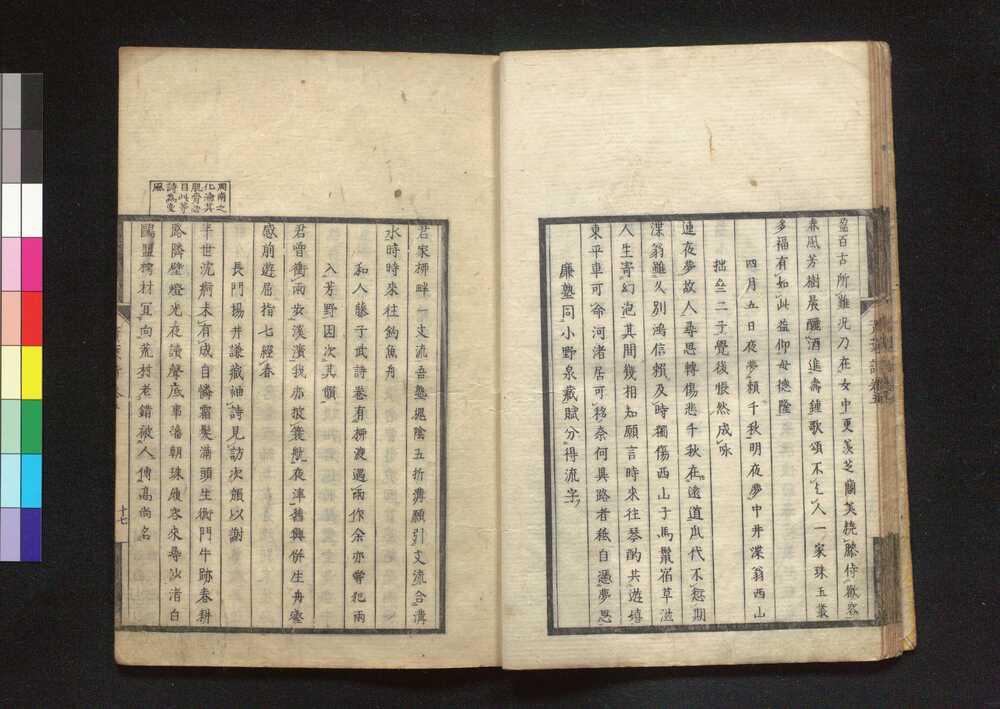 盈百古所難况乃在女中更羨芝蘭美繞膝侍歡容
春風芳樹晨釃酒進壽鍾歌頌不乞人一家珠玉叢
多福有如此益仰母德隆
四月五日夜夢頼千秋明夜夢中井渫翁西山
拙叁二子覺後悵然成咏
連夜夢故人尋思轉傷悲千秋在遠道瓜代不愆期
渫翁雖久別鴻信頼及時獨傷西山子馬鬣宿草滋
人生寄幻泡其間幾相知願言時來往琴酌共遊嬉
東平車可命河渚居可移奈何異路者秪自慿夢思
廉塾同小野泉藏賦分得流字
君家栁畔一支流吾塾槐陰五折溝願引支流合溝
水時時來往釣魚舟
和人藤子武詩卷有栁渡遇雨作余亦嘗犯雨
入芳野因次其韻
君曾衝雨女溪濱我亦披簑航夜津舊興併生舟壑
感前遊屈指七經春
長門楊井謙藏袖詩見訪次韻以謝
半世沈痾未有成自憐霜髮滿頭生衡門牛跡春耕
路隣壁燈光夜讀聲底事潘朝珠履客來尋沙渚白
鷗盟樗材冝向荒村老錯被人傳高尚名
周南之
化淪其
肌骨
目此等
詩爲変
風
十七